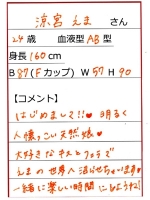 涼宮えま さん
24歳 血液型AB型
身長160cm
B87(Fカップ) W57 H90
【コメント】
はじめまして!!♥ 明るく
人懐っこい天然娘♥
大好きなキスとフェラで
えまの世界へ沼らせちゃいます♥
一緒に楽しい時間にしようね!